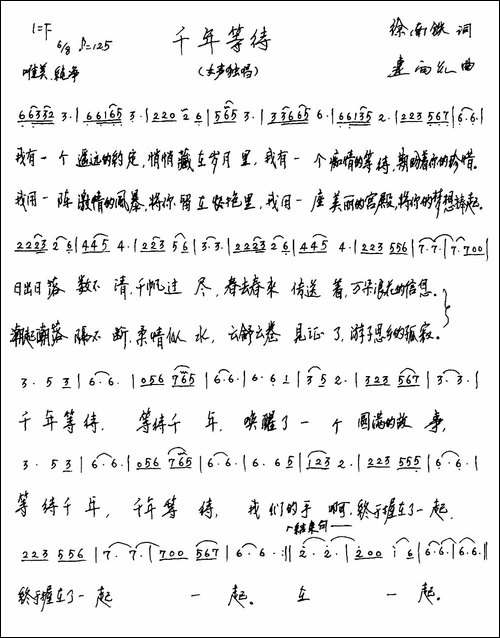 1=F
千年等待
徐南铁 词
6/8 ♪=125
唯美、纯净
(女声独唱)
曲
66332 3·|66165 3·|220 2 6|565 3·|33665 6·|66135 2·|223 567|6·6·|
我有一个遥远的约定,悄悄藏在岁月里,我有一个痴情的等待,期盼着你的珍惜。
我用一阵激情的风暴,将你留在怀抱里,我用一座美丽的宫殿,将你的梦想托起。
2223 2 6|445 4·|223 5 6|3·3·|2223 2 6|445 4·|223 556|7·7·|7·700|
日出日落 数不清,千帆过尽,春去春来 传送着,万朵浪花的信息。
潮起潮落 隔不断,柔情似水,云舒云卷 见证了,游子思乡的孤寂。
3· 5 3|6·6·|056 765|6·6·|6· 6 1|3 5 2·|323 567|3·3·|
千年等待, 等待千年, 唤醒了一个圆满的故事,
3· 5 3|6·6·|056 765|6·6·|6· 6 5|123 2·|223 555|6·6·|
等待千年, 千年等待, 我们的手啊,终于握在了一起,
结束句
223 556|7·7·|700 567|6·6·:‖2·2·|200 1 6|6·6·|6·6·‖
终于握在了一起 一起。 在 一起。